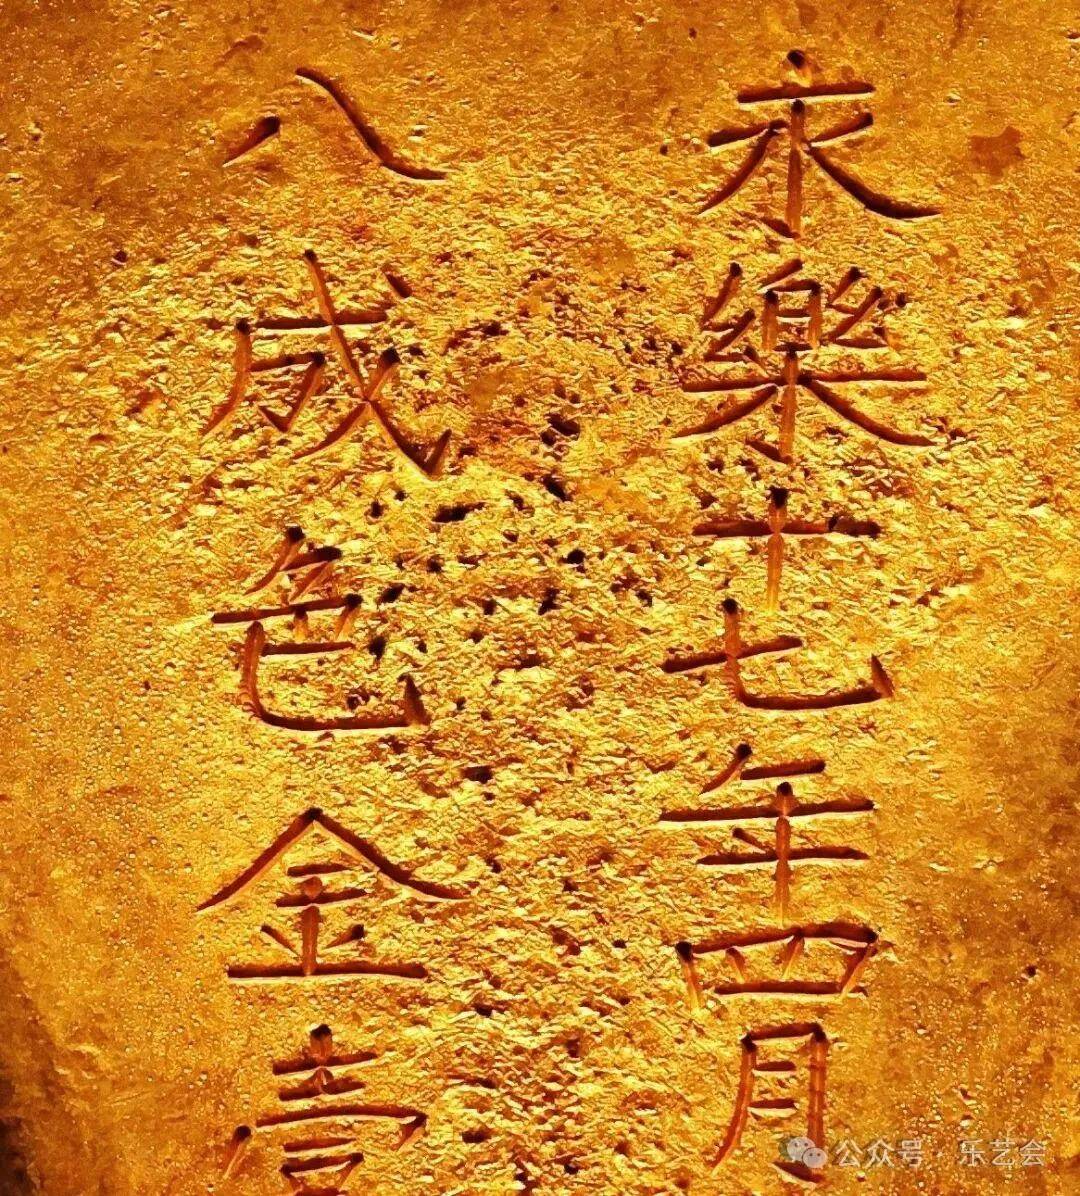 永樂十七年四月
八成色金壹
公众号 · 乐艺会